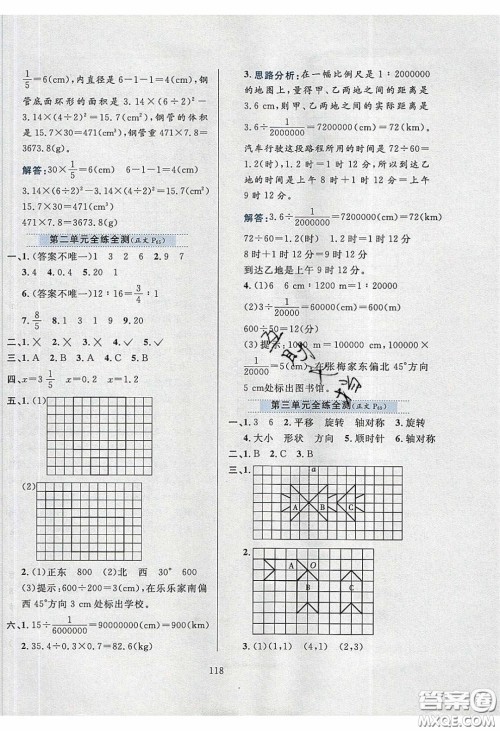 1/5=6(cm),内直径是 6-1-1=4(cm),钢
管底面环形的面积是 3.14×(6÷2)²-
3.14×(4÷2)²=15.7(cm²),钢管的体积
是 15.7×30=471(cm³),钢管重 471×7.8=
3673.8(g)。
解答:30×1/5=6(cm) 6-1-1=4(cm)
3.14×(6÷2)²-3.14×(4÷2)²=15.7(cm²)
15.7×30=471(cm³)
471×7.8=3673.8(g)
第二单元全练全测(正文 P61)
一、1.(答案不唯一)1 3 2 6 2.9 7
3.4 4.0.4 5.20 1
6.(答案不唯一)12∶16=3/4∶1
7.8/5 8.1 3 1 9 9.20
二、1.× 2.× 3.× 4.✓ 5.✓
三、1.A 2.B 3.A 4.C 5.B
四、x=3 1/5 x=0.2 x=1.2
五、1.(1)
(2)
2.(1)正东 800 (2)北 西 30° 600
(3)提示:600÷200=3(cm),在乐乐家南偏
西45°方向 3 cm处标出学校。
六、1.15÷1/6000000=90000000(cm)=900(km)
2.35.4÷0.3×0.7=82.6(kg)
3.思路分析:在一幅比例尺是 1∶2000000
的地图上,量得甲、乙两地之间的距离是
3.6 cm,则甲、乙两地之间的实际距离是
3.6÷1/2000000=7200000(cm)=72(km)。
汽车行驶这段路程所用的时间是 72÷60=
1.2(时),1.2时=1时12分,所以到达乙
地的时间是上午8时+1时12分=9时
12分。
解答:3.6÷1/2000000=7200000(cm)=72(km)
72÷60=1.2(时) 1.2时=1时12分
8时+1时12分=9时12分
到达乙地是上午9时12分。
4.(1)0 6 1200 1∶2000000
600÷50=12(分)
5 cm处标出图书馆。
第三单元全练全测(正文 P63)
一、1.3 6 2.平移 旋转 轴对称 3.旋转
4.大小 形状 方向 5.顺时针 6.轴对称
二、1.B 2.B 3.C 4.C
三、1.
a
A B
2.
A O
B
3.(1)(1,1) (4,1) (2)(1,4)
118
答案圈
MXQE.COM